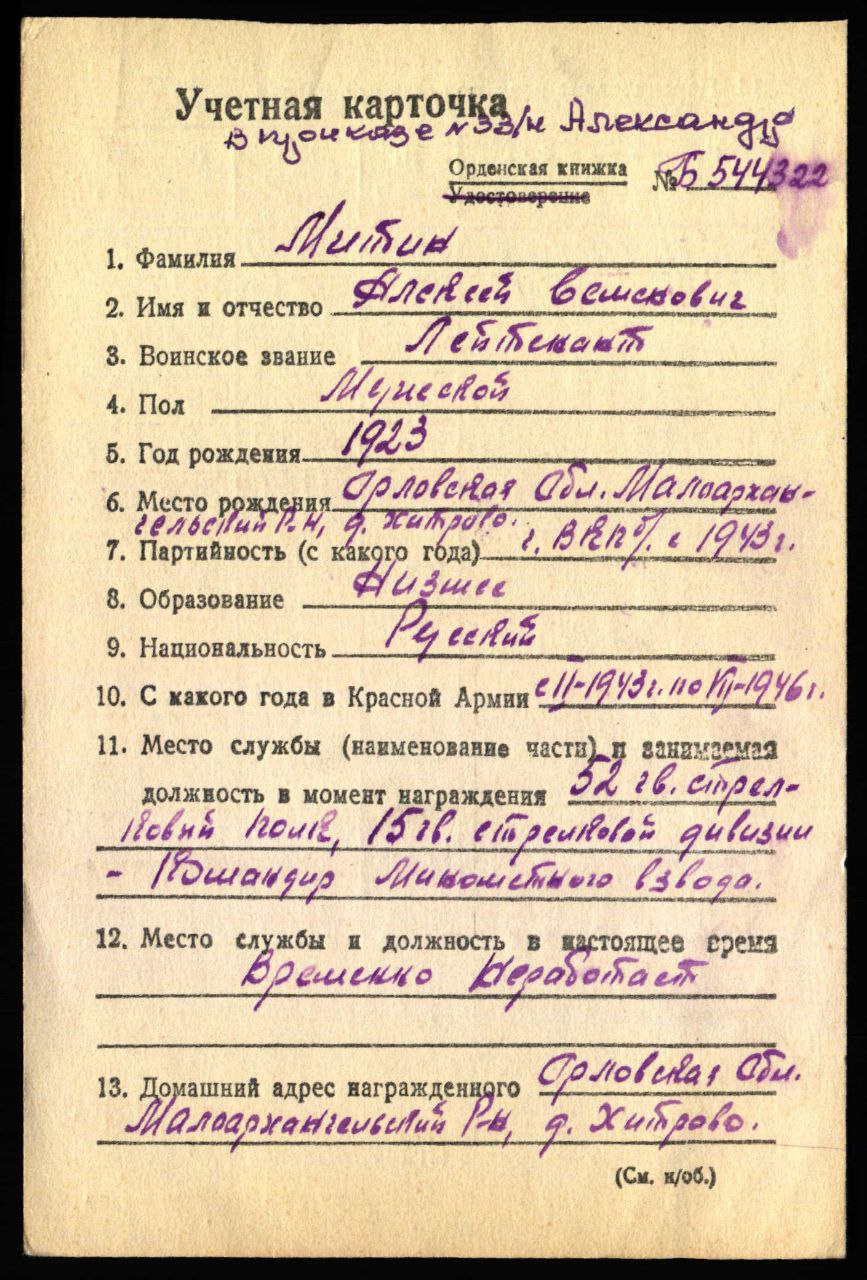 Учетная карточка
В приказе № 33/н Александр
Орденская книжка № Б 544322
Удостоверение
1. Фамилия Митин
2. Имя и отчество Алексей Семенович
3. Воинское звание Лейтенант
4. Пол Мужской
5. Год рождения 1923
6. Место рождения Орловская Обл. Малоархан-
гельский Р-н, д. Хитрово.
7. Партийность (с какого года) г. ВКП/б/. с 1943 г.
8. Образование Низшее
9. Национальность Русский
10. С какого года в Красной Армии с II-1943 г. по VII-1946 г.
11. Место службы (наименование части) и занимаемая
должность в момент награждения 52 гв. стрел-
ковый полк, 15 гв. стрелковой дивизии
- Командир Минометного взвода.
12. Место службы и должность в настоящее время
Временно Неработает
13. Домашний адрес награжденного Орловская Обл.
Малоархангельский Р-н, д. Хитрово.
(См. н/об.)